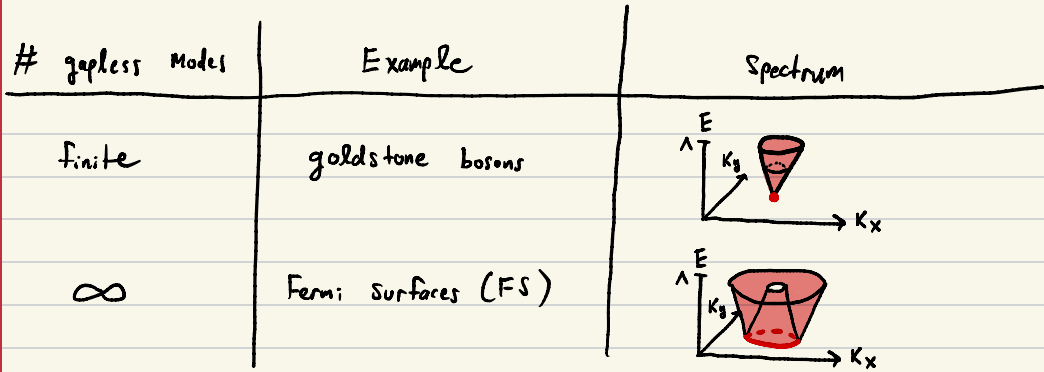 # gapless Modes Example Spectrum
finite goldstone bosons
E
Λ
Ky
Kx
∞ Fermi surfaces (FS)
E
Λ
Ky
Kx